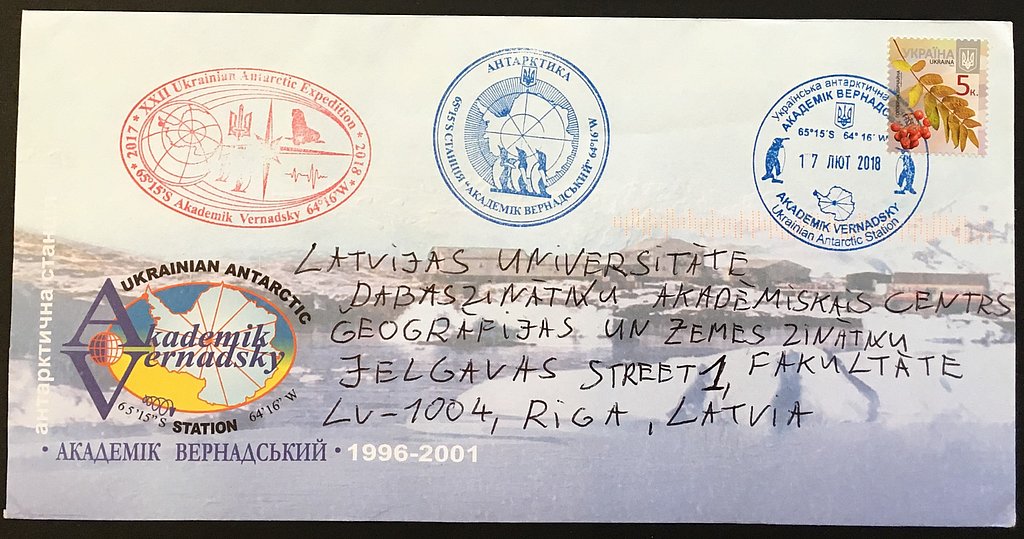 * 2017 * XXII Ukrainian Antarctic Expedition * 2018 *
65°15'S Akademik Vernadsky 64°16'W
АНТАРКТИКА
65°15'S СТАНЦІЯ "АКАДЕМІК ВЕРНАДСЬКИЙ" 64°16'W
Українська антарктична
АКАДЕМІК ВЕРНАДС
65°15'S 64°16'W
17 ЛЮТ 2018
AKADEMIK VERNADSKY
Ukrainian Antarctic Station
УКРАЇНА
UKRAINE
5к.
LATVIJAS UNIVERSITĀTE
DABASZINĀTŅU AKADĒMISKAIS CENTRS
GEOGRĀFIJAS UN ZEMES ZINĀTŅU
JELGAVAS STREET 1, FAKULTĀTE
LV-1004, RĪGA, LATVIA
антарктична стан
UKRAINIAN ANTARCTIC
Akademik
Vernadsky
65°15"S STATION 64°16"W
• АКАДЕМІК ВЕРНАДСЬКИЙ • 1996-2001